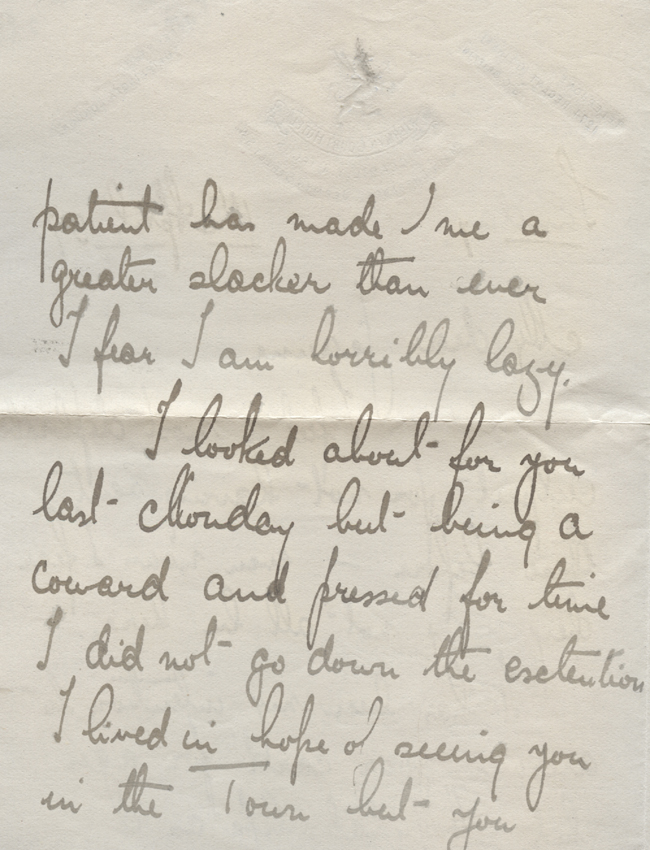 patient has made me a
greater slacker than ever
I fear I am horribly lazy.
I looked about for you
last Monday but being a
coward and pressed for time
I did not go down the extention
I lived in hope of seeing you
in the Town but you